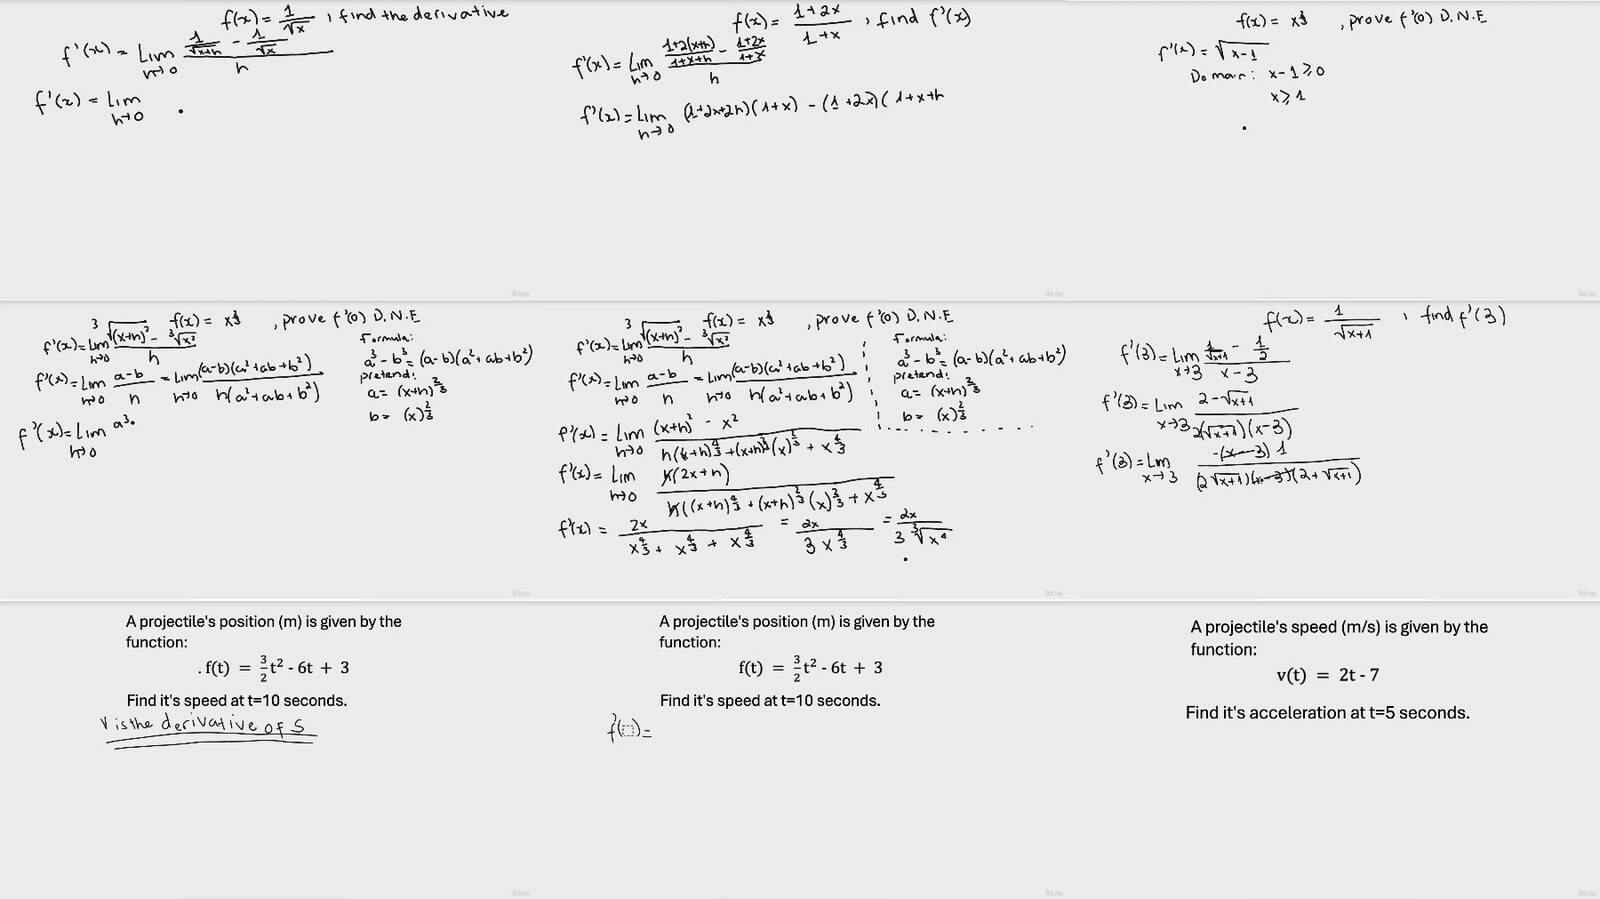 f(x) = 1/√x , find the derivative
f'(x) = Lim h→0 (1/√(x+h) - 1/√x)/h
f'(x) = Lim h→0
f(x) = (1+2x)/(1+x) , find f'(x)
f'(x) = Lim h→0 ((1+2(x+h))/(1+x+h) - (1+2x)/(1+x))/h
f'(x) = Lim h→0 (1+2x+2h)(1+x) - (1+2x)(1+x+h
, prove f'(0) D.N.E
f'(x) = √(x-1)
Domain: x-1 ≥ 0
x ≥ 1
, prove f'(0) D.N.E
f'(x) = Lim h→0 (³√(x+h)² - ³√x²)/h
Formula:
a³ - b³ = (a-b)(a² + ab + b²)
f'(x) = Lim h→0 (a-b)/h = Lim h→0 (a-b)(a² + ab + b²)/h(a² + ab + b²)
pretend:
a = (x+h)^(2/3)
b = (x)^(2/3)
f'(x) = Lim h→0 a³
, prove f'(0) D.N.E
f'(x) = Lim h→0 (³√(x+h)² - ³√x²)/h
Formula:
a³ - b³ = (a-b)(a² + ab + b²)
f'(x) = Lim h→0 (a-b)/h = Lim h→0 (a-b)(a² + ab + b²)/h(a² + ab + b²)
pretend:
a = (x+h)^(2/3)
b = (x)^(2/3)
f'(x) = Lim h→0 ((x+h)² - x²)/(h(x+h)^(4/3) + (x+h)^(2/3)(x)^(2/3) + x^(4/3))
f'(x) = Lim h→0 h(2x+h)/h((x+h)^(4/3) + (x+h)^(2/3)(x)^(2/3) + x^(4/3))
f'(x) = 2x/(x^(4/3) + x^(4/3) + x^(4/3)) = 2x/(3x^(4/3)) = 2x/(3 ³√x⁴)
f(x) = 1/√(x+1) , find f'(3)
f'(3) = Lim x→3 (1/√(x+1) - 1/2)/(x-3)
f'(3) = Lim x→3 (2-√(x+1))/(2(√(x+1))(x-3))
f'(3) = Lim x→3 -(x-3) 1/((2√(x+1))(x-3)(2+√(x+1)))
A projectile's position (m) is given by the
function:
f(t) = 3/2 t² - 6t + 3
Find it's speed at t=10 seconds.
V is the derivative of S
A projectile's position (m) is given by the
function:
f(t) = 3/2 t² - 6t + 3
Find it's speed at t=10 seconds.
f'( ) =
A projectile's speed (m/s) is given by the
function:
v(t) = 2t - 7
Find it's acceleration at t=5 seconds.